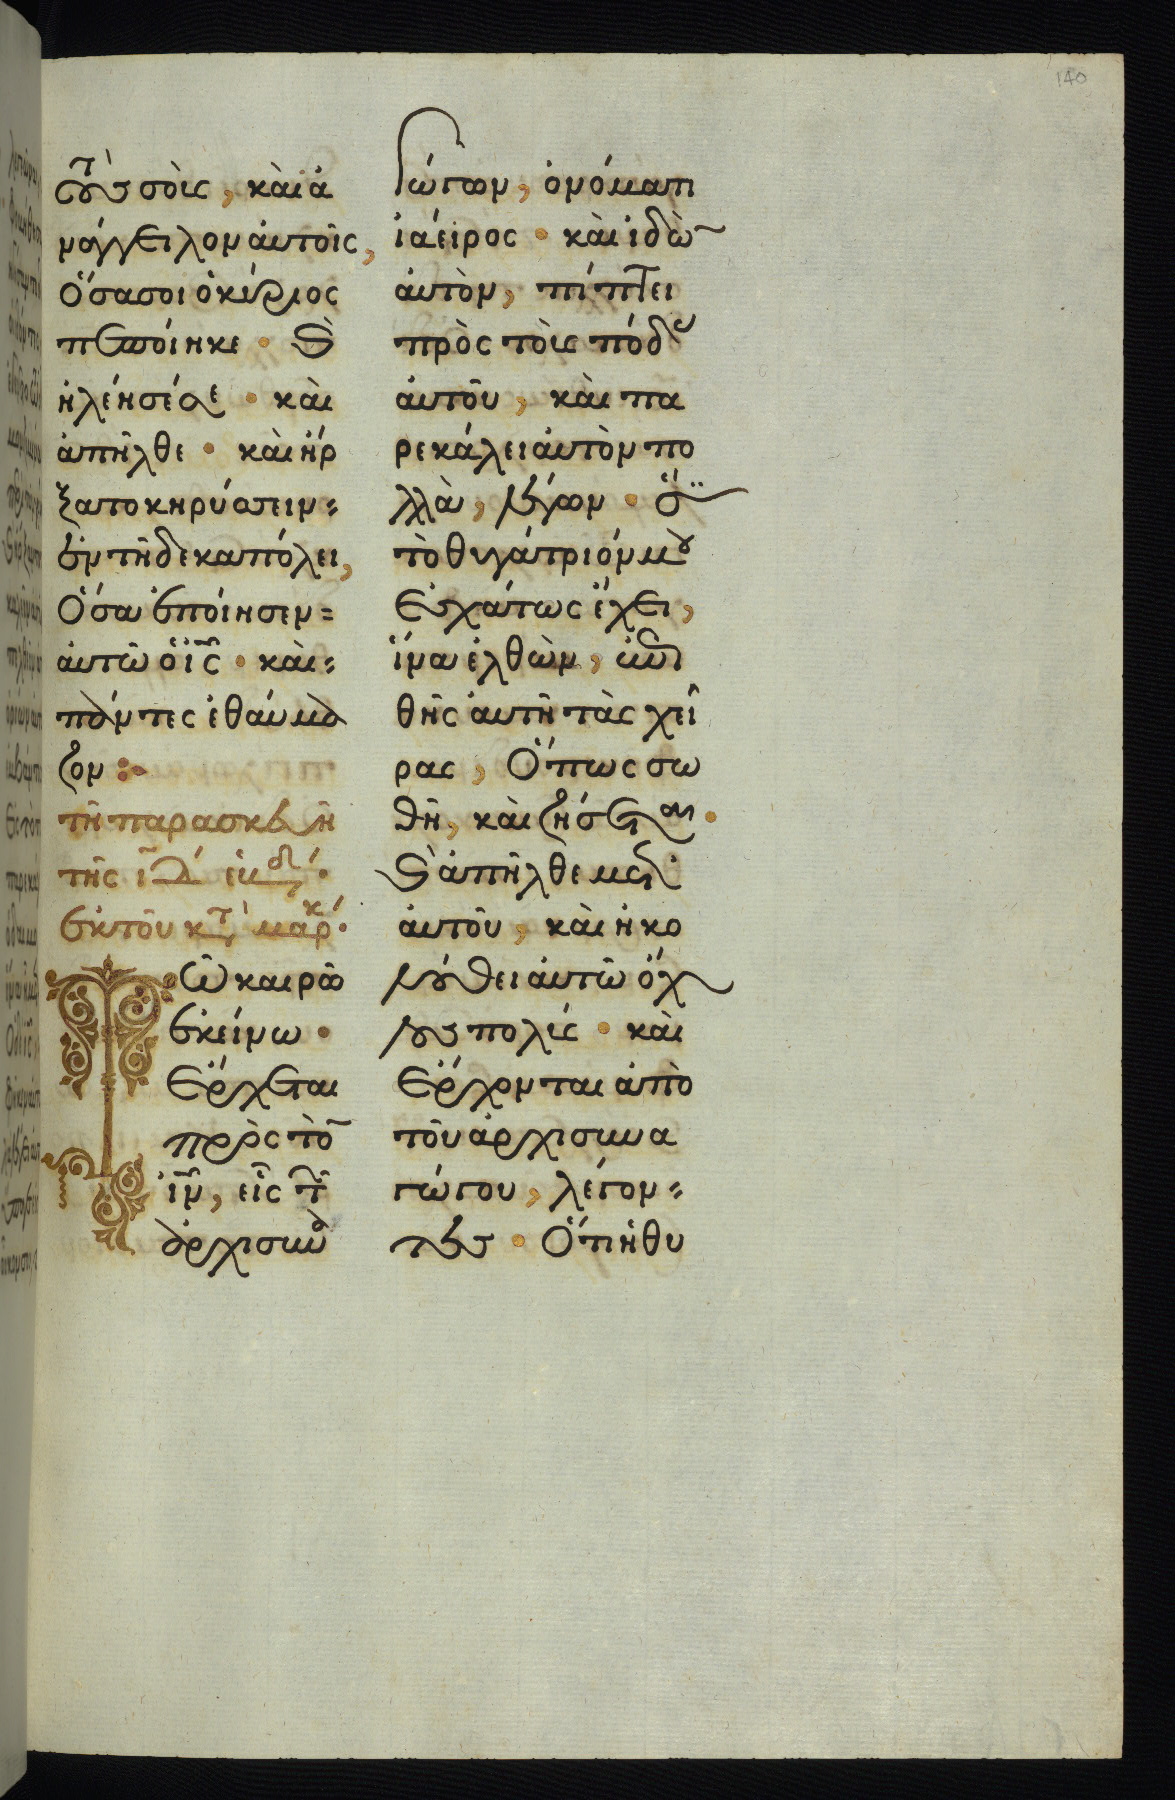 140
τοὺς σοὺς, καὶ ἀ
νάγγειλον αὐτοῖς,
Ὅσα σοι ὁ κύριος
πεποίηκε · καὶ
ἠλέησέ σε · καὶ
ἀπῆλθε · καὶ ἤρ
ξατο κηρύσσειν
ἐν τῇ δεκαπόλει,
Ὅσα ἐποίησεν
αὐτῶ ὁ ἰς · καὶ
πάντες ἐθαύμα
ζον :
τῇ παρασκευῇ
τῆς ιδ ἑβδ.
ἐκ τοῦ κτ μάρκ.
Τῶ καιρῶ
ἐκείνω ·
Ἔρχεται
πρὸς τὸν
ἰν, εἷς τῶν
ἀρχισυνα
γώγων, ὀνόματι
ἰάειρος · καὶ ἰδὼν
αὐτὸν, πίπτει
πρὸς τοὺς πόδας
αὐτοῦ, καὶ πα
ρεκάλει αὐτὸν πο
λλὰ, λέγων · ὅτι
τὸ θυγάτριόν μου
Ἐσχάτως ἔχει,
ἵνα ἐλθὼν, ἐπι
θῇς αὐτῇ τὰς χεῖ
ρας, Ὅπως σω
θῇ, καὶ ζήσεται ·
καὶ ἀπῆλθε μετ
αὐτοῦ, καὶ ἠκο
λούθει αὐτῶ ὄχ
λος πολὺς · καὶ
Ἔρχονται ἀπὸ
τοῦ ἀρχισυνα
γώγου, λέγον
τες · Ὅτι ἡ θυ